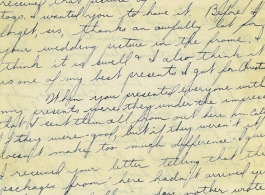 received that picture of
tags. I wanted you to have it. Before I
forget, sis, thanks an awfully lot for
your wedding picture in the frame. I
think it is swell & I also think it
is one of my best presents I got for
When you presented everyone with
my presents were they under the impress
that I sent them all from out here in
they were – good, but if they weren't
doesn't make too much difference.
I received your letter telling that the
packages from here hadn't arrived
day mother wrote